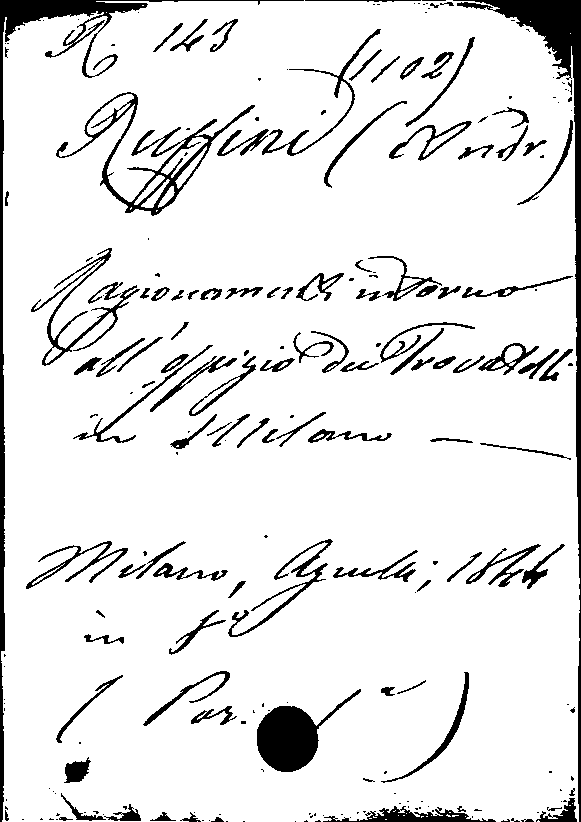 R. 143
(1102)
Ruffini (Andr.)
Ragionamenti intorno
all'ospizio dei Trovatelli
in Milano —
Milano, Agnelli; 1844
in 8º
( Par. 1ª )